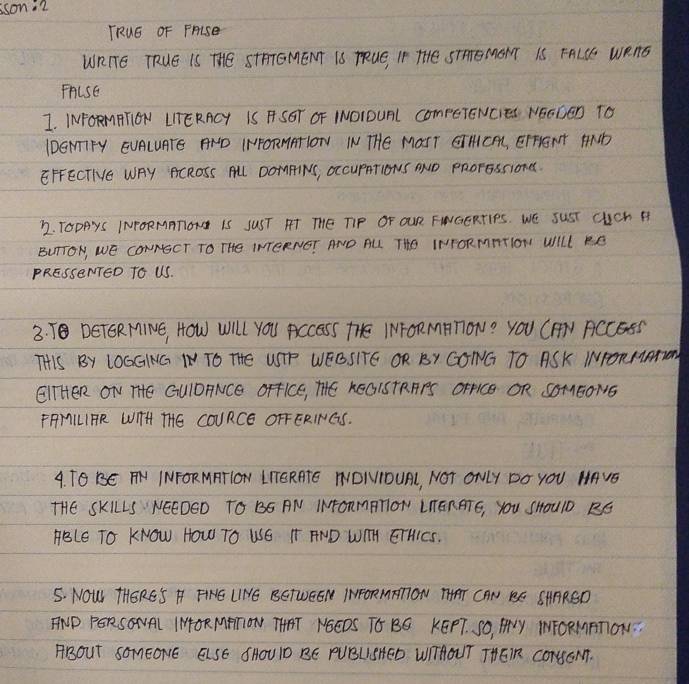 sson: 2
TRUE OF FALSE
WRITE TRUE IS THE STATEMENT IS TRUE, IF THE STATEMENT IS FALSE WRITE
FALSE
1. INFORMATION LITERACY IS A SET OF INDIDUAL COMPETENCIES NEEDED TO
IDENTIFY EVALUATE AND INFORMATION IN THE MOST ETHICAL, EFFIENT AND
EFFECTIVE WAY ACROSS ALL DOMAINS, OCCUPATIONS AND PROFESSIONS.
2. TODAYS INFORMATIONS IS JUST AT THE TIP OF OUR FINGERTIPS. WE JUST CLICH A
BUTTON, WE CONNECT TO THE INTERNET AND ALL THE INFORMATION WILL BE
PRESSENTED TO US.
3. TO DETERMINE, HOW WILL YOU ACCESS THE INFORMATION? YOU CAN ACCESS
THIS BY LOGGING IN TO THE USTP WEBSITE OR BY GOING TO ASK INFORMATION
EITHER ON THE GUIDANCE OFFICE, THE REGISTRAR'S OFFICE OR SOMEONE
FAMILIAR WITH THE COURCE OFFERINGS.
4. TO BE AN INFORMATION LITERATE INDIVIDUAL, NOT ONLY DO YOU HAVE
THE SKILLS NEEDED TO BE AN INFORMATION LITERATE, YOU SHOULD BE
ABLE TO KNOW HOW TO USE IT AND WITH ETHICS.
5. NOW THERE'S A FINE LINE BETWEEN INFORMATION THAT CAN BE SHARED
AND PERSONAL INFORMATION THAT NEEDS TO BE KEPT. SO, ANY INFORMATION
ABOUT SOMEONE ELSE SHOULD BE PUBLISHED WITHOUT THEIR CONSENT.